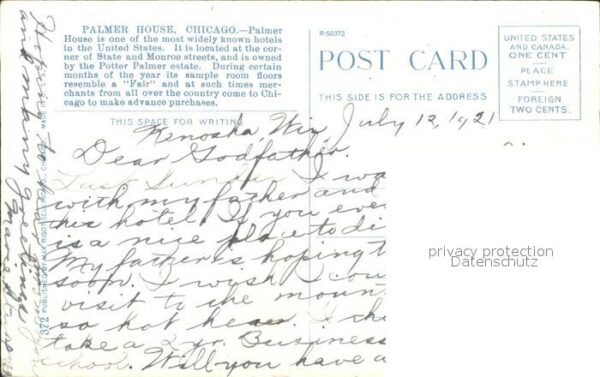 PALMER HOUSE, CHICAGO.—Palmer
House is one of the most widely known hotels
in the United States. It is located at the cor-
ner of State and Monroe streets, and is owned
by the Potter Palmer estate. During certain
months of the year its sample room floors
resemble a "Fair" and at such times mer-
chants from all over the country come to Chi-
cago to make advance purchases.
THIS SPACE FOR WRITING
R-50372
POST CARD
THIS SIDE IS FOR THE ADDRESS
UNITED STATES
AND CANADA
ONE CENT
PLACE
STAMP HERE
FOREIGN
TWO CENTS.
Kenosha, Wis, July 12, 1921
Dear Godfather.
Last Sunday I wa
with my father and
this hotel. If you eve
is a nice place to di
My father is hoping t
soon. I wish I cou
visit to the moun
so hot here. I th
take a 2 yr. Business
school. Will you have a
372
privacy protection
Datenschutz